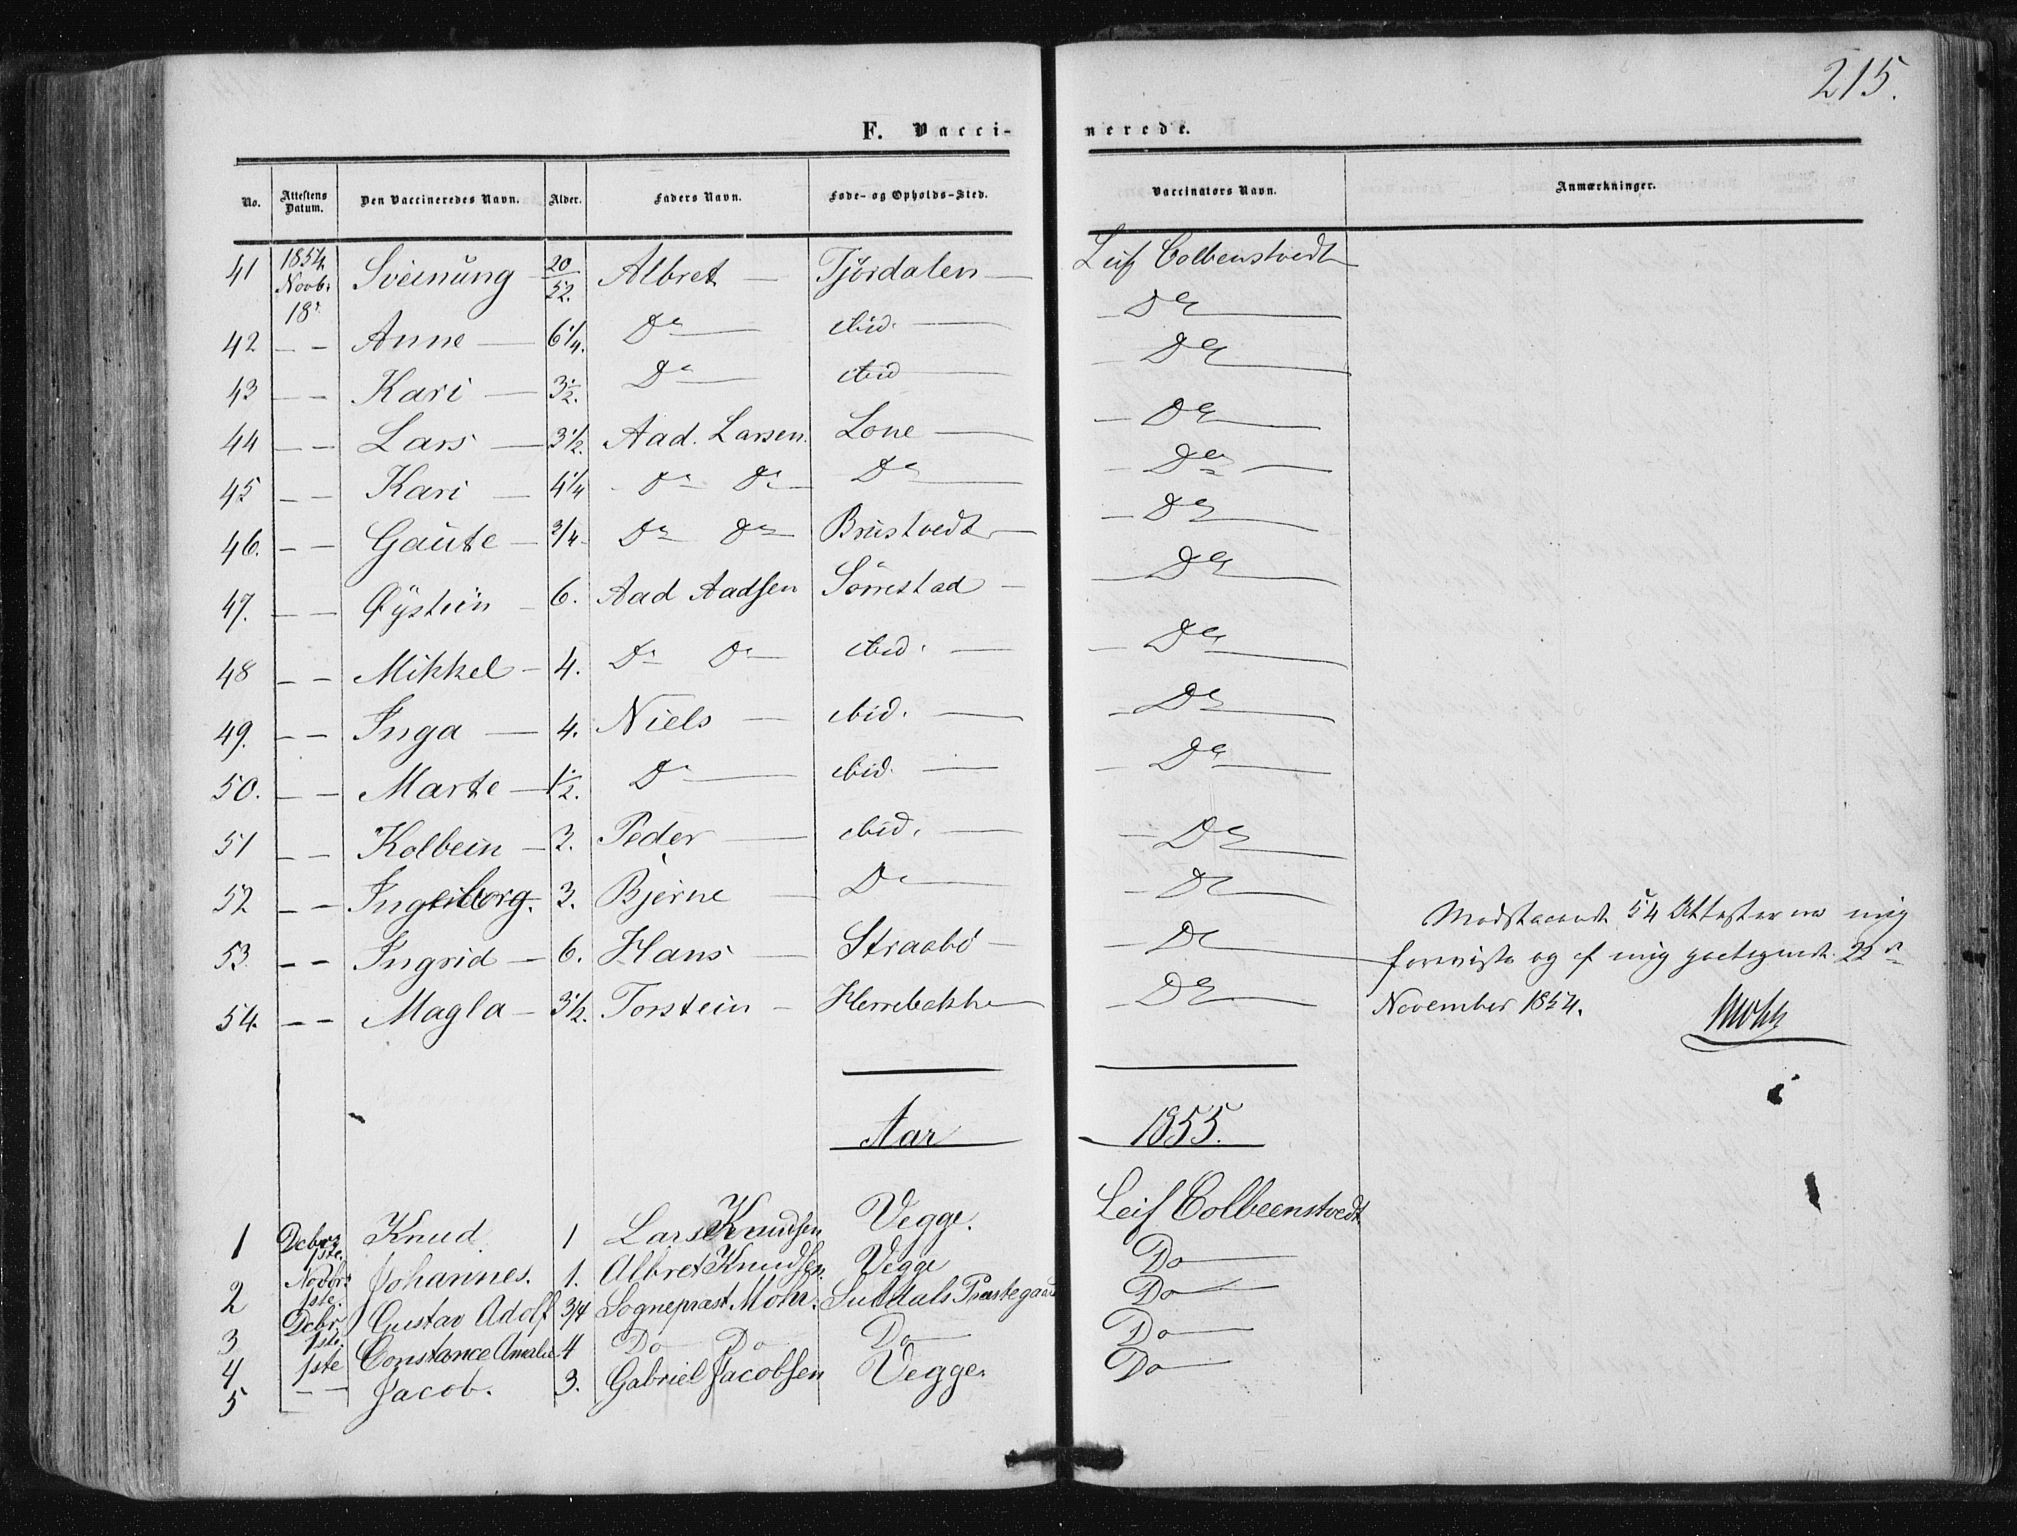 215.
F. Vaccinerede.
No. Attestens Datum. Den Vaccineredes Navn. Alder. Faders Navn. Føde- og Opholds-Sted. Vaccinators Navn. Anmærkninger.
41 1854 Novb. 18. Sveinung 20/52. Albret Tjórdalen Leif Colbenstvedt
42 — — Anne 6 1/4. Do ibid. Do
43 — — Kari 3 1/2. Do ibid Do
44 — — Lars 3 1/2. Aad. Larsen. Lone Do
45 — — Kari 4 1/4 Do Do Do Do
46. — — Gaute 3/4 Do Do Brustvedt Do
47. — — Øystein 6. Aad Aadsen Sørrestad Do
48 — — Mikkel 4. Do Do ibid. Do
49. — — Inga 4. Niels ibid. Do
50. — — Marte 1/2. Do ibid. Do
51 — — Kolbein 2. Peder ibid. Do
52 — — Ingeborg. 3. Bjørne Do Do
53. — — Ingrid 6. Hans Straabø Do
54. — — Magla 3 1/2. Torstein Herrebakke Do
54 Attester mig
og af mig 22
November 1854.
Mohr
Aar 1855.
1 Dcbr 1ste. Knud. 1 Lars Knudsen Vegge. Leif Colbeenstvedt
2 Novbr 1ste. Johannes. 1. Albret Knudsen. Vegge Do
3 Dcbr. 1ste. Gustav Adolf 3/4 Sognepræst Mohr. Præstegaard Do
4 1ste Constance Amalie 4 Do Do Do Do
5 — — Jacob. 3. Gabriel Jacobsen Vegge. Do